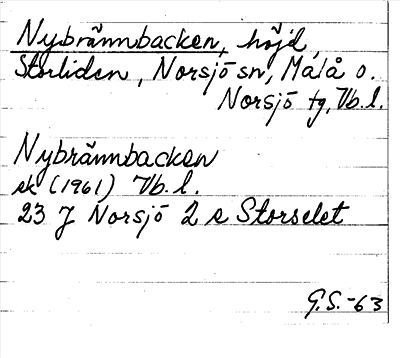 Nybrännbacken, höjd,
Storliden, Norsjö sn, Malå o.
Norsjö tg, Vb.l.
Nybrännbacken
ek (1961) Vb.l.
23 J Norsjö 2 e Storselet
G.S.-63